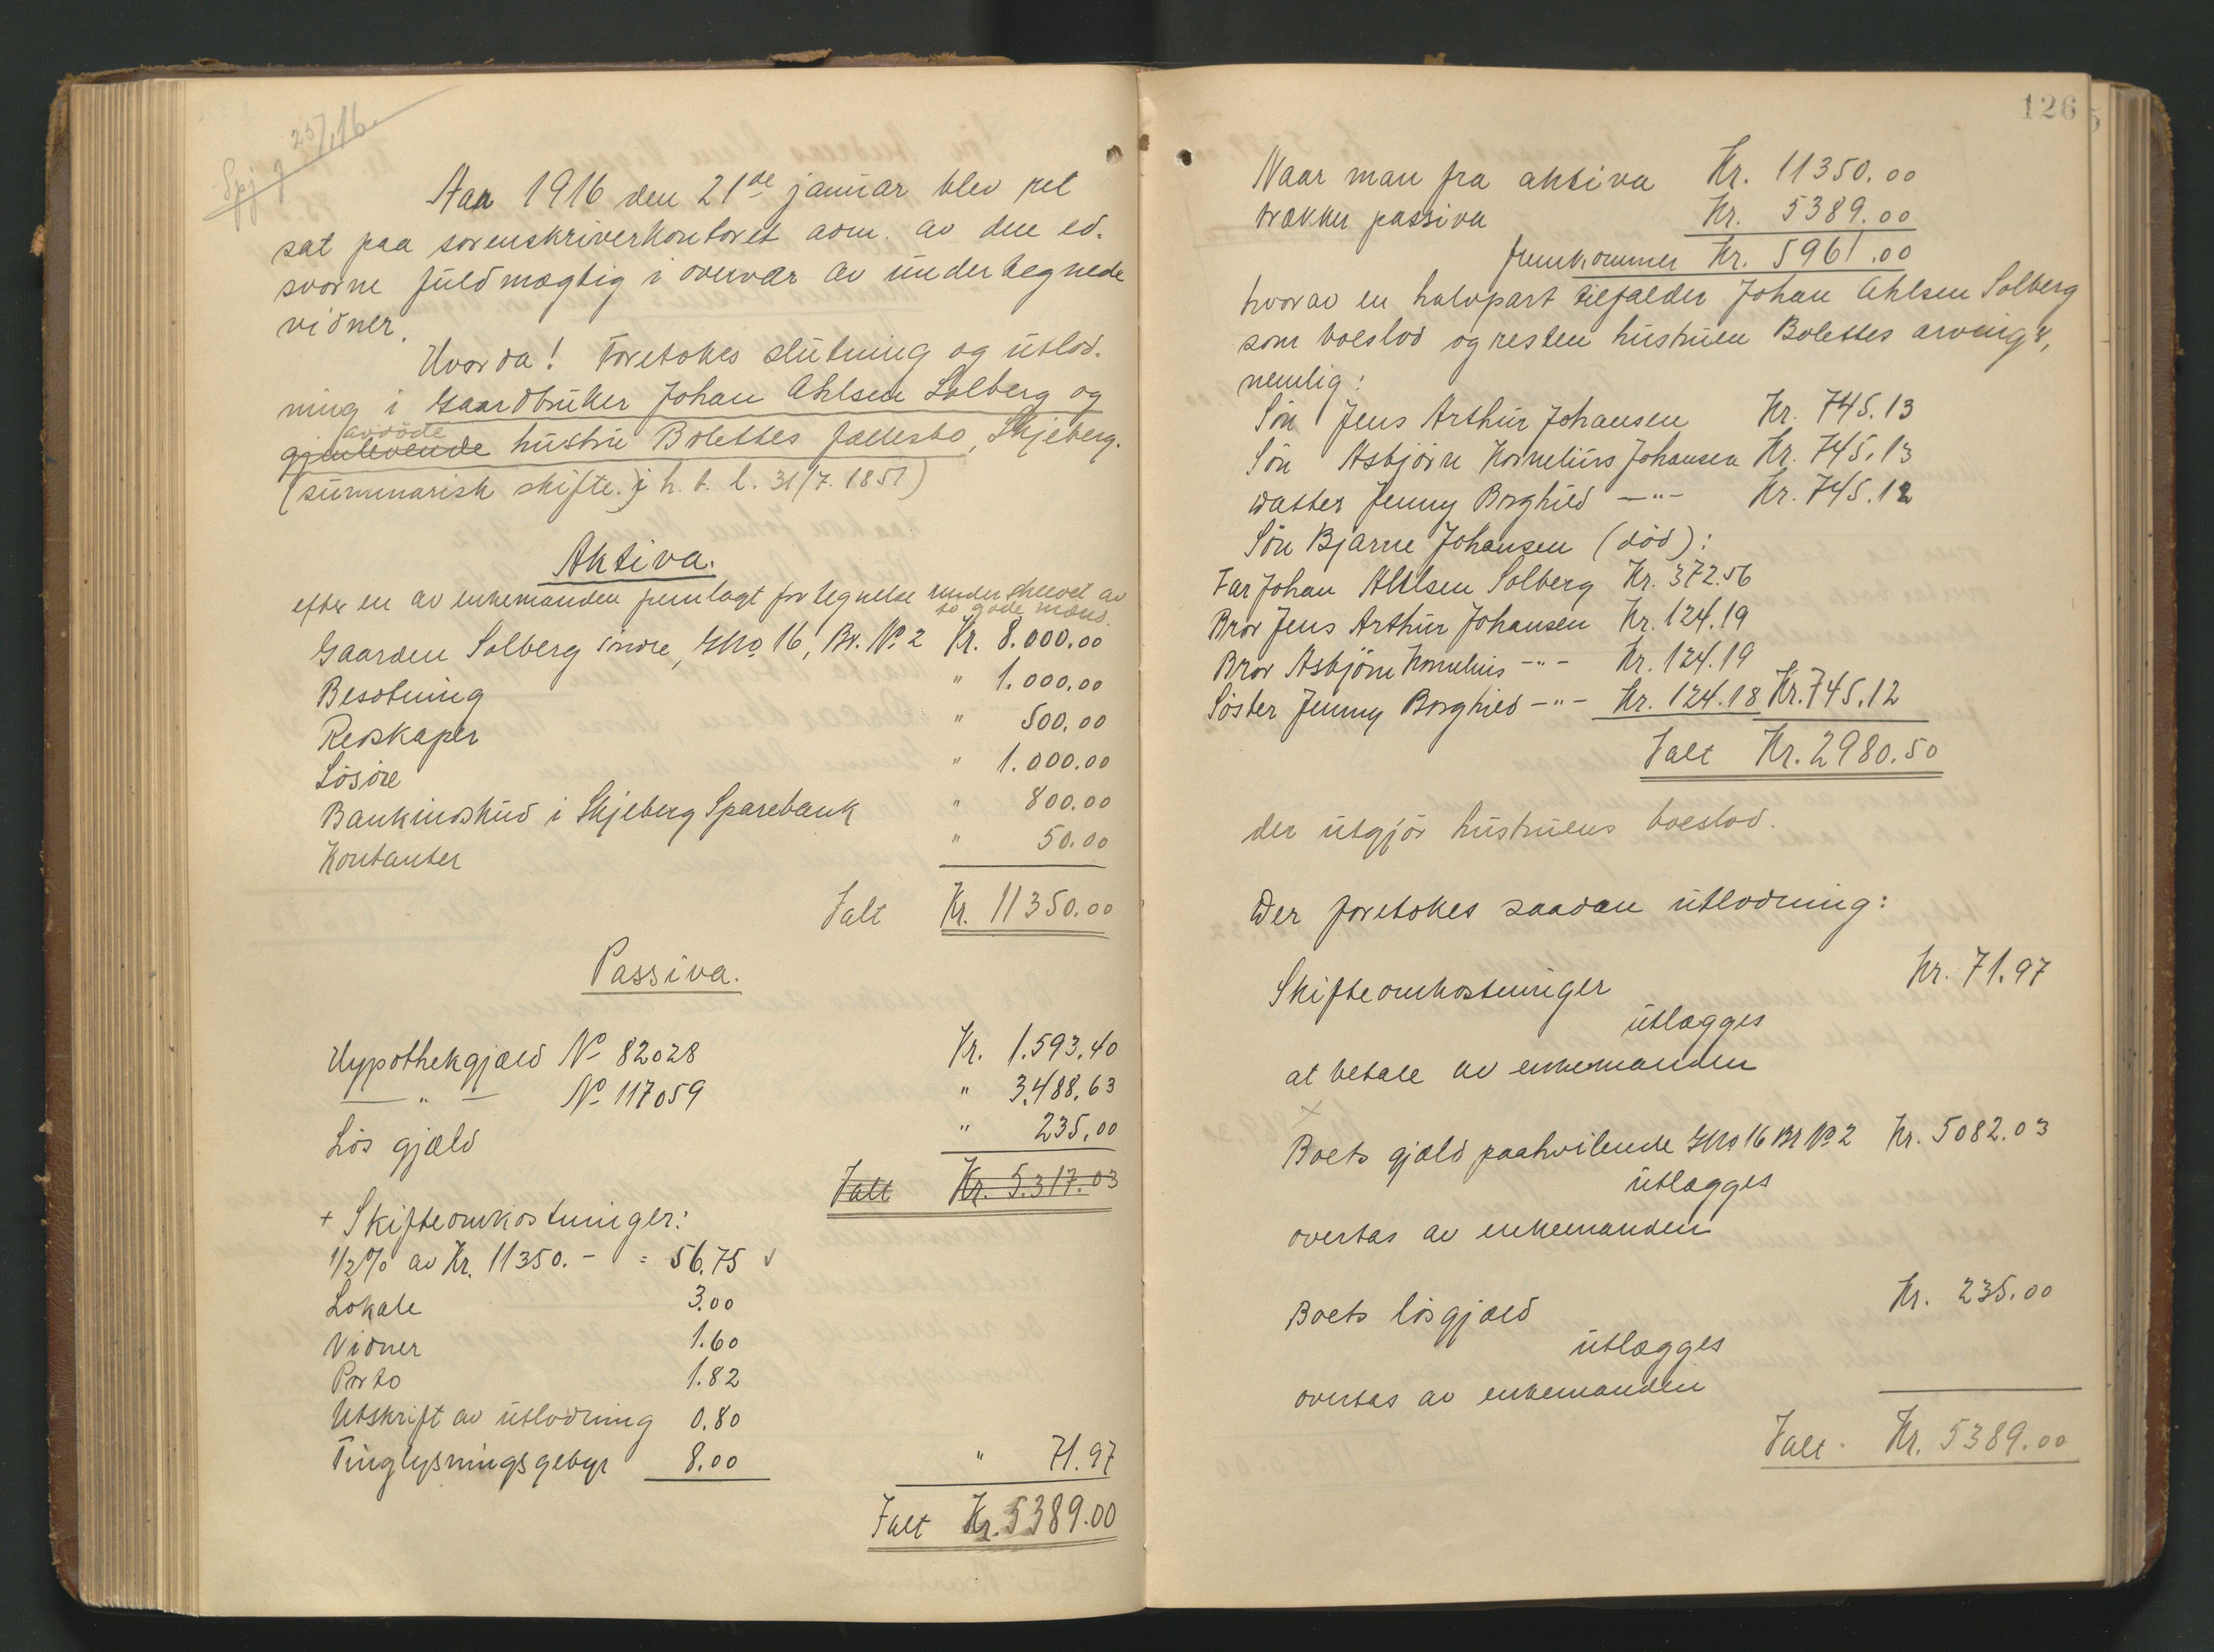 237/16.
Spj J
Aar 1916 den 21de januar blev ret
sat paa sorenskriverkontoret adm. av den ed-
svorne fuldmægtig i overvær av undertegnede
vidner.
Hvorda! Foretokes slutning og utlod-
ning i Gaardbruker Johan Ahlsen Solberg og
avdøde
gjenlevende hustru Bolettes fællesbo, Skjeberg.
(summarisk skifte i h. t. l. 31/7. 1851)
Aktiva.
efter en av enkemanden fremlagt fortegnelse underskrevet av
to gode mænd.
Gaarden Solberg søndre, Gno 16, Br. No 2 Kr. 8.000.00
Besætning " 1.000.00
Redskaper " 500.00
Løsøre " 1.000.00
Bankindskud i Skjeberg Sparebank " 800.00
Kontanter " 50.00
Ialt Kr. 11350.00
Passiva.
Hypothekgjæld No 82028 Kr. 1.593.40
— " — No 117059 " 3.488.63
Løs gjæld " 235.00
Ialt Kr. 5.317.03
+ Skifteomkostninger:
1/2 % av Kr. 11350.- = 56.75 ✓
Lokale 3.00
Vidner 1.60
Porto 1.82
Utskrift av utlodning 0.80
Tinglysningsgebyr 8.00 " 71.97
Ialt Kr. 5389.00
126
Naar man fra aktiva Kr. 11350.00
trækker passiva Kr. 5389.00
fremkommer Kr. 5961.00
hvorav en halvpart tilfalder Johan Ahlsen Solberg
som boeslod og resten hustruen Bolettes arvinger,
nemlig:
Søn Jens Arthur Johansen Kr. 745.13
Søn Asbjørn Kornelius Johansen Kr. 745.13
Datter Jenny Borghild —"— Kr. 745.12
Søn Bjarne Johansen (død):
Far Johan Ahlsen Solberg Kr. 372.56
Bror Jens Arthur Johansen Kr. 124.19
Bror Asbjørn Kornelius -"- Kr. 124.19
Søster Jenny Borghild -"- Kr. 124.18 Kr. 745.12
Ialt Kr. 2980.50
der utgjør hustruens boeslod.
Der foretokes saadan utlodning:
Skifteomkostninger Kr. 71.97
utlægges
at betale av enkemanden
Boets gjæld paahvilende Gno 16 Br No 2 Kr. 5082.03
utlægges
overtas av enkemanden
Boets løsgjæld Kr. 235.00
utlægges
overtas av enkemanden
Ialt. Kr. 5389.00